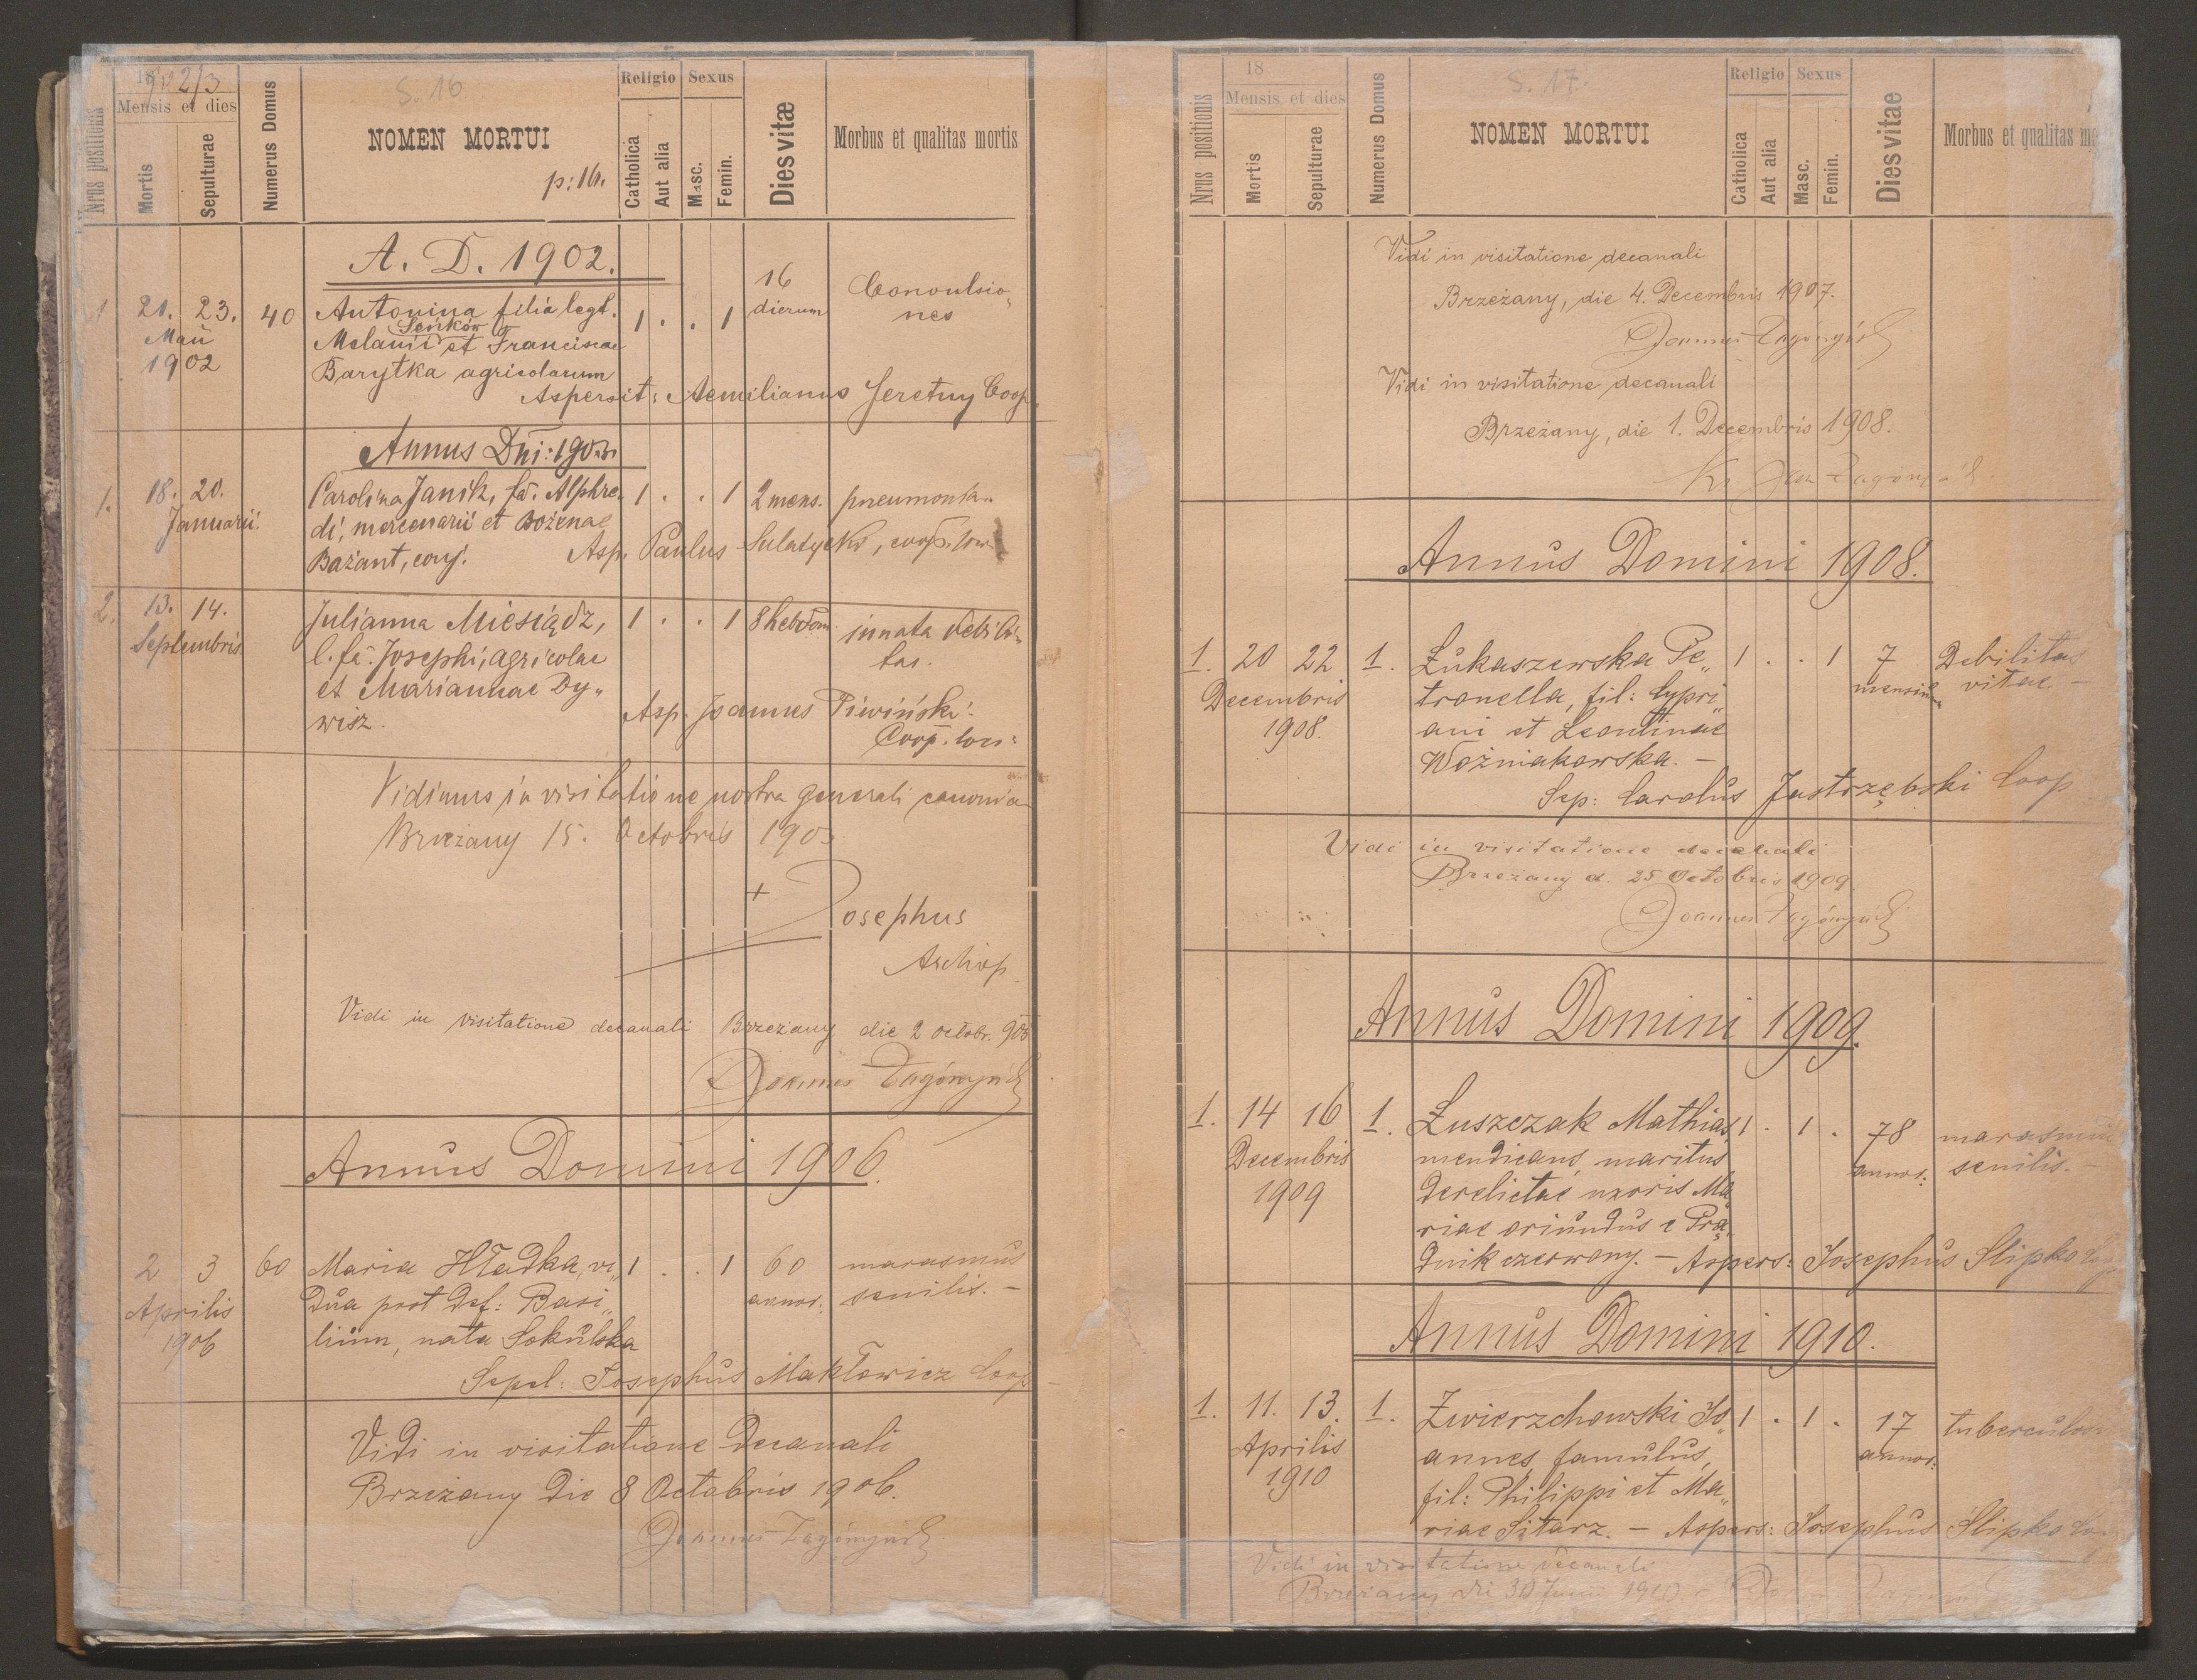 1902/3
S. 16
Nrus positionis
Mensis et dies
Mortis
Sepulturae
Numerus Domus
NOMEN MORTUI
p: 16.
Religio
Catholica
Aut alia
Sexus
Masc.
Femin.
Dies vitæ
Morbus et qualitas mortis
A. D. 1902.
1 21. 23. 40 Antonina filia legt. 1 . . 1 16 dierum Convulsio„
Maii Melanii Seńków et Franciscae nes
1902 Barytka agricolarum
Aspersit: Aemilianus Jeretny Coop.
Annus Dni: 1903.
1. 18. 20. Carolina Janik, fa. Alphre„ 1 . . 1 2 mens. pneumonia.
Januarii. di, mercenarii et Bożenae
Bażant, conj. Asp. Paulus Sulatycki, coop. loc.
2. 13. 14. Julianna Miesiądz, 1 . . 1 8 hebdom. innata debili„
Septembris l. fa. Josephi, agricolae tas.
et Mariannae Dy„
wisz. Asp. Joannes Piwiński
Coop. loci:
Vidimus in visitatione nostra generali canonica
Brzeżany 15. Octobris 190
+ Josephus
Archiep.
Vidi in visitatione decanali Brzeżany die 2 octobr.
Joannes
Annus Domini 1906.
2 3 60 Maria Hładka, vi„ 1 . . 1 60 marasmus
Aprilis dua post def: Basi„ annor: senilis. –
1906 lium, nata Sokulska
Sepel: Josephus Makłowicz Coop
Vidi in visitatione decanali
Brzeżany die 8 Octobris 1906.
Joannes
18
S. 17.
Nrus positionis
Mensis et dies
Mortis
Sepulturae
Numerus Domus
NOMEN MORTUI
Religio
Catholica
Aut alia
Sexus
Masc.
Femin.
Dies vitæ
Morbus et qualitas
Vidi in visitatione decanali
Brzeżany, die 4. Decembris 1907.
Joannes
Vidi in visitatione decanali
Brzeżany, die 1. Decembris 1908.
Ks Jan
Annus Domini 1908.
1. 20 22 1. Łukaszewska Pe„ 1 . . 1 7 Debilitas
Decembris tronella, fil: Cypri„ mensium vitae –
1908. ani et Leontinae
Woźniakowska. –
Sep: Carolus Jastrzębski Coop
Vidi in visitatione decanali
Brzeżany d. 25 Octobris 1909
Joannes
Annus Domini 1909.
1. 14 16 1. Łuszczak Mathias, 1 . 1 . 78 marasmus
Decembris mendicans, maritus annor: senilis. –
1909 derelictae uxoris Ma„
riae oriundus e Prą„
dnik czerwony. – Aspers: Josephus Slipko
Annus Domini 1910.
1. 11. 13. 1. Zwierzchowski Jo„ 1 . 1 . 17 tuberculos
Aprilis annes, famulus, annor:
1910 fil: Philippi et Ma„
riae Sitarz. – Aspers: Josephus Slipko
Vidi in visitatione decanali
Brzeżany die 30 Junii 1910.